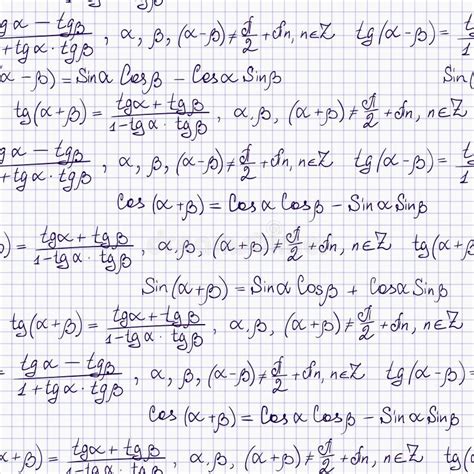 tgα − tgβ / 1 + tgα · tgβ , α, β, (α−β) ≠ π/2 + πn, n∈Z tg(α−β) =
α − β) = Sinα Cosβ − Cosα Sinβ
tg(α+β) = tgα + tgβ / 1 − tgα · tgβ , α, β, (α+β) ≠ π/2 + πn, n∈Z
tgα − tgβ / 1 + tgα · tgβ , α, β, (α−β) ≠ π/2 + πn, n∈Z tg(α−β) =
Cos (α+β) = Cosα Cosβ − Sinα Sinβ
) = tgα + tgβ / 1 − tgα · tgβ , α, β, (α+β) ≠ π/2 + πn, n∈Z tg(α+
Sin (α+β) = Sinα Cosβ + Cosα Sinβ
tg(α+β) = tgα + tgβ / 1 − tgα · tgβ , α, β, (α+β) ≠ π/2 + πn, n∈Z
tgα − tgβ / 1 + tgα · tgβ , α, β, (α−β) ≠ π/2 + πn, n∈Z tg(α−β) =
Cos (α+β) = Cosα Cosβ − Sinα Sinβ
α+β) = tgα + tgβ / 1 − tgα · tgβ , α, β, (α+β) ≠ π/2 + πn, n∈Z